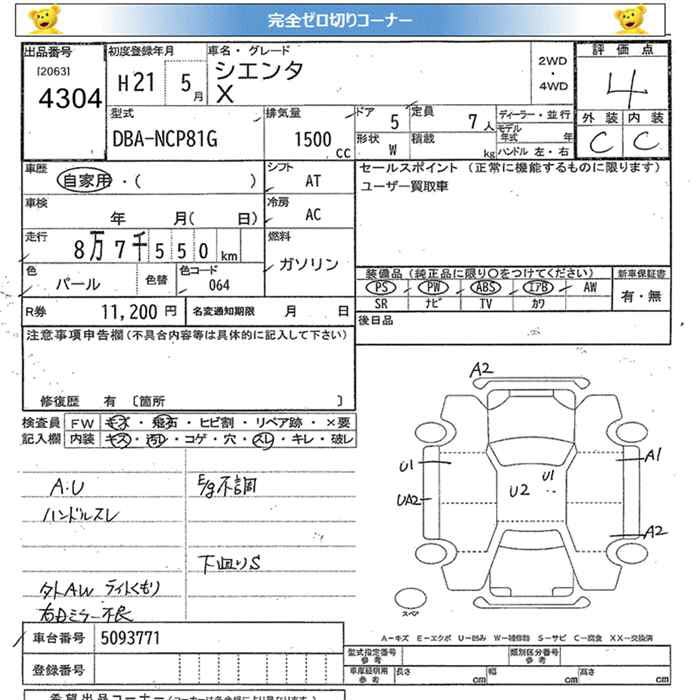 完全ゼロ切りコーナー
出品番号 初度登録年月 車名・グレード 評価点
[2063]
4304
H21 5月 シエンタ
X
2WD・4WD
4
型式 排気量 ドア 定員 ディーラー・並行 外装 内装
DBA-NCP81G 1500cc 5 7人
モデル年式 年
形状 W 積載 kg ハンドル 左・右
C C
車歴 シフト セールスポイント (正常に機能するものに限ります)
自家用・( ) AT ユーザー買取車
車検 冷房
年 月( 日) AC
走行 燃料
8万7千550km ガソリン
装備品 (純正品に限り○をつけてください) 新車保証書
色 色替 色コード
パール 064
PS PW ABS エアB AW 有・無
SR ナビ TV カワ
R券 11,200円 名変通知期限 月 日
後日品
注意事項申告欄(不具合内容等は具体的に記入して下さい)
修復歴 有 〔箇所 〕
検査員 FW キズ・飛石・ヒビ割・リペア跡・×要
記入欄 内装 キズ・汚れ・コゲ・穴・スレ・キレ・破レ
A2
U1 A1
U1
U2
UA2
A2
A・U E/g不調
ハンドルスレ
下廻りS
タトAW ライトくもり
右Dミラー不良
スペア
A―キズ E―エクボ U―凹み W―補修跡 S―サビ C―腐食 XX―交換済
車台番号 5093771
型式指定番号 参考 類別区分番号 参考
登録番号
車庫証明用 参考 長さ cm 幅 cm 高さ cm
希望出品コーナー